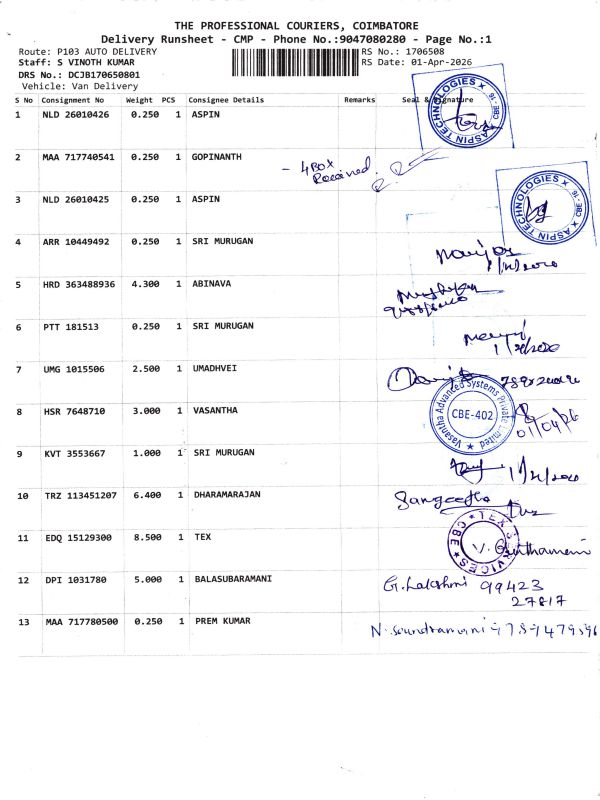 THE PROFESSIONAL COURIERS, COIMBATORE
Delivery Runsheet - CMP - Phone No.:9047080280 - Page No.:1
Route: P103 AUTO DELIVERY RS No.: 1706508
Staff: S VINOTH KUMAR RS Date: 01-Apr-2026
DRS No.: DCJB170650801
Vehicle: Van Delivery
S No Consignment No Weight PCS Consignee Details Remarks Seal & Signature
1 NLD 26010426 0.250 1 ASPIN
ASPIN TECHNOLOGIES CBE - 16
2 MAA 717740541 0.250 1 GOPINANTH
- 4 Box
Received.
3 NLD 26010425 0.250 1 ASPIN
ASPIN TECHNOLOGIES CBE - 16
4 ARR 10449492 0.250 1 SRI MURUGAN
5 HRD 363488936 4.300 1 ABINAVA
6 PTT 181513 0.250 1 SRI MURUGAN
7 UMG 1015506 2.500 1 UMADHVEI
8 HSR 7648710 3.000 1 VASANTHA
Vasantha Advanced Systems Private Limited
CBE-402
01/04/26
9 KVT 3553667 1.000 1 SRI MURUGAN
10 TRZ 113451207 6.400 1 DHARAMARAJAN
Sangeetha
11 EDQ 15129300 8.500 1 TEX
TEX SERVICES CBE
12 DPI 1031780 5.000 1 BALASUBARAMANI
G. Lakshmi 99423
27817
13 MAA 717780500 0.250 1 PREM KUMAR
N. Soundramani